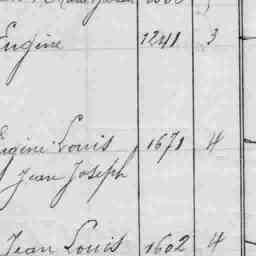 Eugène 1241 3
Eugène Louis 1671 4
Jean Joseph
Jean Louis 1602 4